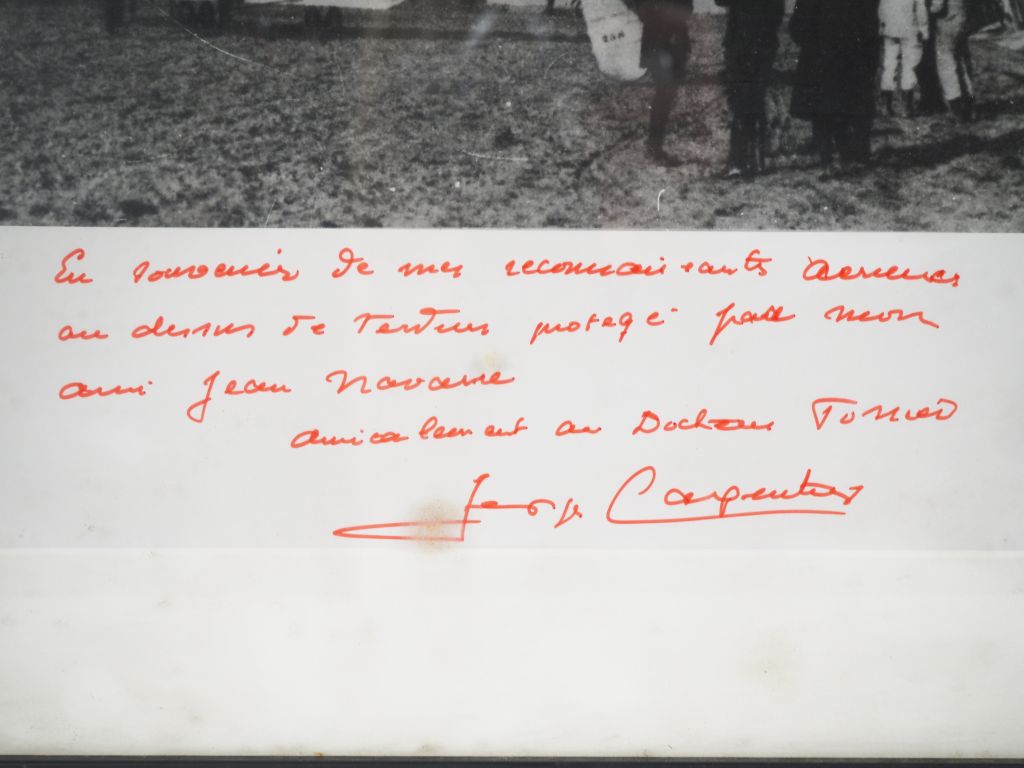 En souvenir de mes reconnaissants Aeriennes
au dessus de Verdun protegé par mon
ami Jean Navarre
amicalement au Docteur
Georges Carpentier